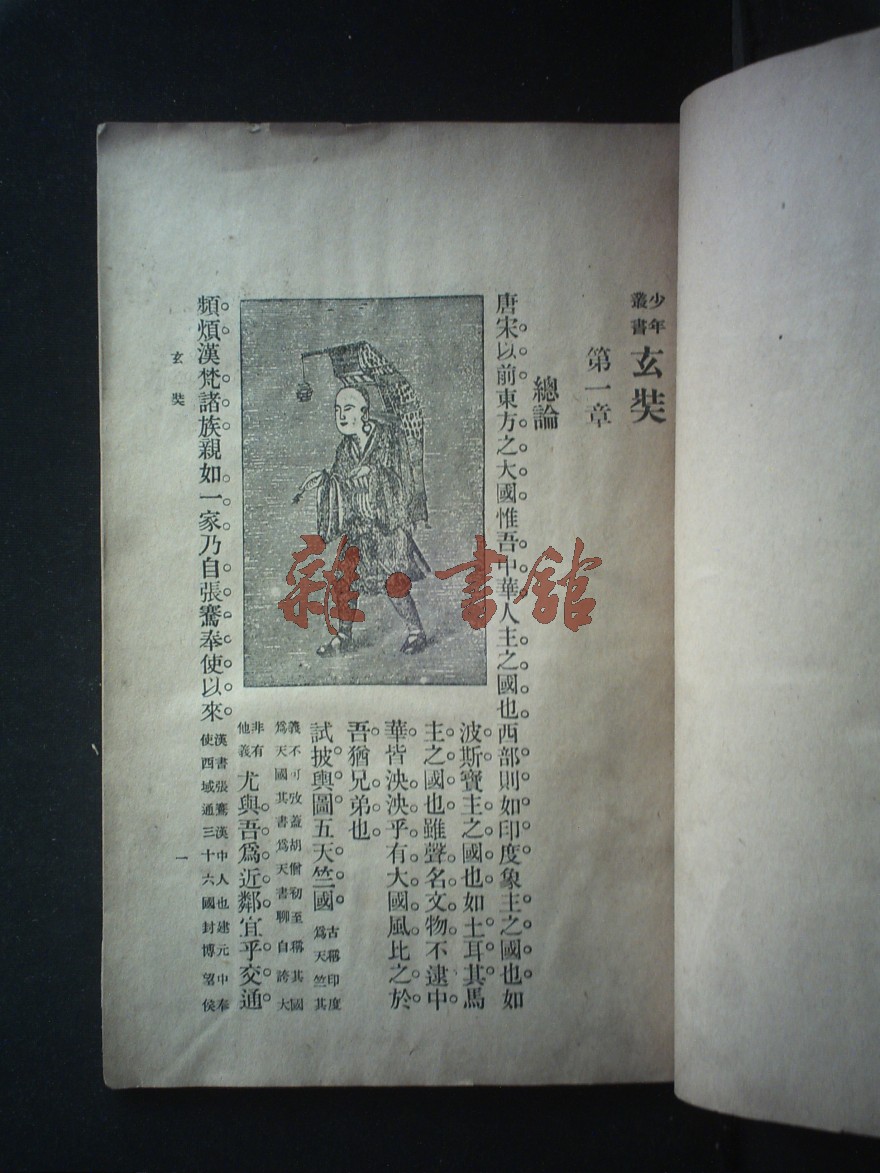 少年叢書 玄奘
第一章
總論
唐宋以前東方之大國惟吾中華人主之國也西部則如印度象主之國也如
波斯寶主之國也如土耳其馬
主之國也雖聲名文物不逮中
華皆泱泱乎有大國風比之於
吾猶兄弟也
試披輿圖五天竺國古稱印度爲天竺其
義不可攷蓋胡僧初至稱其國爲天國其書爲天書聊自誇大
非有他義尤與吾爲近鄰宜乎交通
頻煩漢梵諸族親如一家乃自張騫奉使以來漢書張騫漢中人也建元中奉使西域通三十六國封博望侯
玄奘 一
雜·書館